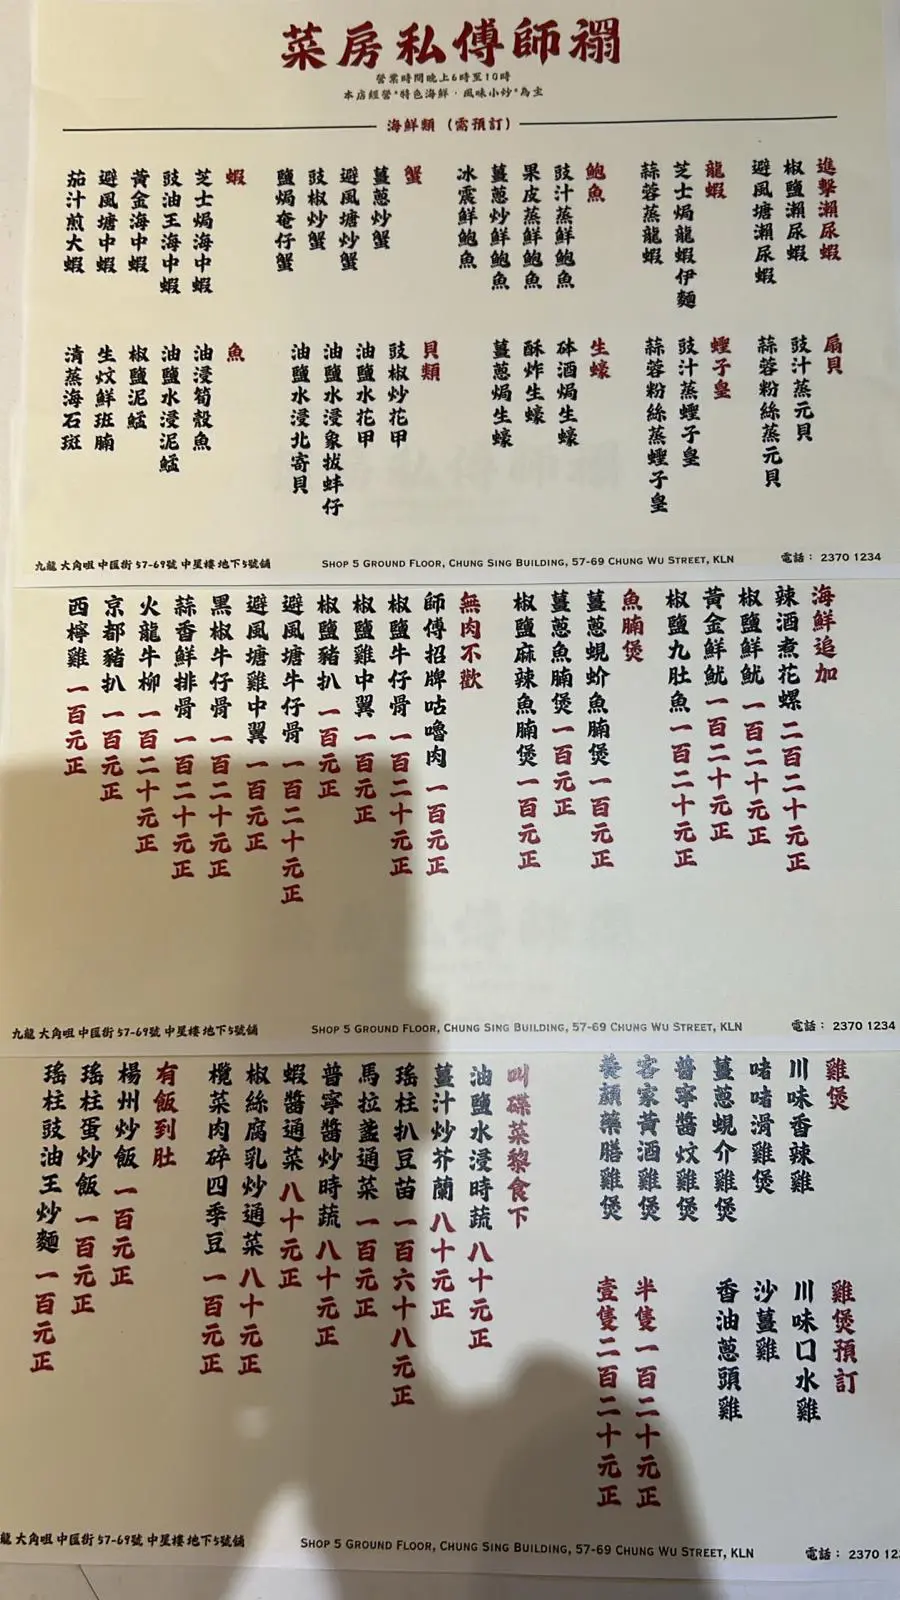 禤師傅私房菜
營業時間晚上6時至10時
本店經營"特色海鮮．風味小炒"為主
海鮮類（需預訂）
進擊瀨尿蝦
椒鹽瀨尿蝦
避風塘瀨尿蝦
龍蝦
芝士焗龍蝦伊麵
蒜蓉蒸龍蝦
鮑魚
豉汁蒸鮮鮑魚
果皮蒸鮮鮑魚
薑蔥炒鮮鮑魚
冰震鮮鮑魚
蟹
薑蔥炒蟹
避風塘炒蟹
豉椒炒蟹
鹽焗奄仔蟹
蝦
芝士焗海中蝦
豉油王海中蝦
黃金海中蝦
避風塘中蝦
茄汁煎大蝦
扇貝
豉汁蒸元貝
蒜蓉粉絲蒸元貝
蟶子皇
豉汁蒸蟶子皇
蒜蓉粉絲蒸蟶子皇
生蠔
砵酒焗生蠔
酥炸生蠔
薑蔥焗生蠔
貝類
豉椒炒花甲
油鹽水花甲
油鹽水浸象拔蚌仔
油鹽水浸北寄貝
魚
油浸筍殼魚
油鹽水浸泥鯭
椒鹽泥鯭
生炆鮮斑腩
清蒸海石斑
九龍 大角咀 中匯街 57-69號 中星樓 地下5號舖
SHOP 5 GROUND FLOOR, CHUNG SING BUILDING, 57-69 CHUNG WU STREET, KLN
電話： 2370 1234
海鮮追加
辣酒煮花螺 二百二十元正
椒鹽鮮魷 一百二十元正
黃金鮮魷 一百二十元正
椒鹽九肚魚 一百二十元正
魚腩煲
薑蔥蜆蚧魚腩煲 一百元正
薑蔥魚腩煲 一百元正
椒鹽麻辣魚腩煲 一百元正
無肉不歡
師傅招牌咕嚕肉 一百元正
椒鹽牛仔骨 一百二十元正
椒鹽雞中翼 一百元正
椒鹽豬扒 一百元正
避風塘牛仔骨 一百二十元正
避風塘雞中翼 一百元正
黑椒牛仔骨 一百二十元正
蒜香鮮排骨 一百二十元正
火龍牛柳 一百二十元正
京都豬扒 一百元正
西檸雞 一百元正
九龍 大角咀 中匯街 57-69號 中星樓 地下5號舖
SHOP 5 GROUND FLOOR, CHUNG SING BUILDING, 57-69 CHUNG WU STREET, KLN
電話： 2370 1234
雞煲
川味香辣雞
啫啫滑雞煲
薑蔥蜆介雞煲
普寧醬炆雞煲
客家黃酒雞煲
養顏藥膳雞煲
雞煲預訂
川味口水雞
沙薑雞
香油蔥頭雞
半隻一百二十元正
壹隻二百二十元正
叫碟菜黎食下
油鹽水浸時蔬 八十元正
薑汁炒芥蘭 八十元正
瑤柱扒豆苗 一百六十八元正
馬拉盞通菜 一百元正
普寧醬炒時蔬 八十元正
蝦醬通菜 八十元正
椒絲腐乳炒通菜 八十元正
欖菜肉碎四季豆 一百元正
有飯到肚
楊州炒飯 一百元正
瑤柱蛋炒飯 一百元正
瑤柱豉油王炒麵 一百元正
龍 大角咀 中匯街 57-69號 中星樓 地下5號舖
SHOP 5 GROUND FLOOR, CHUNG SING BUILDING, 57-69 CHUNG WU STREET, KLN
電話： 2370 12